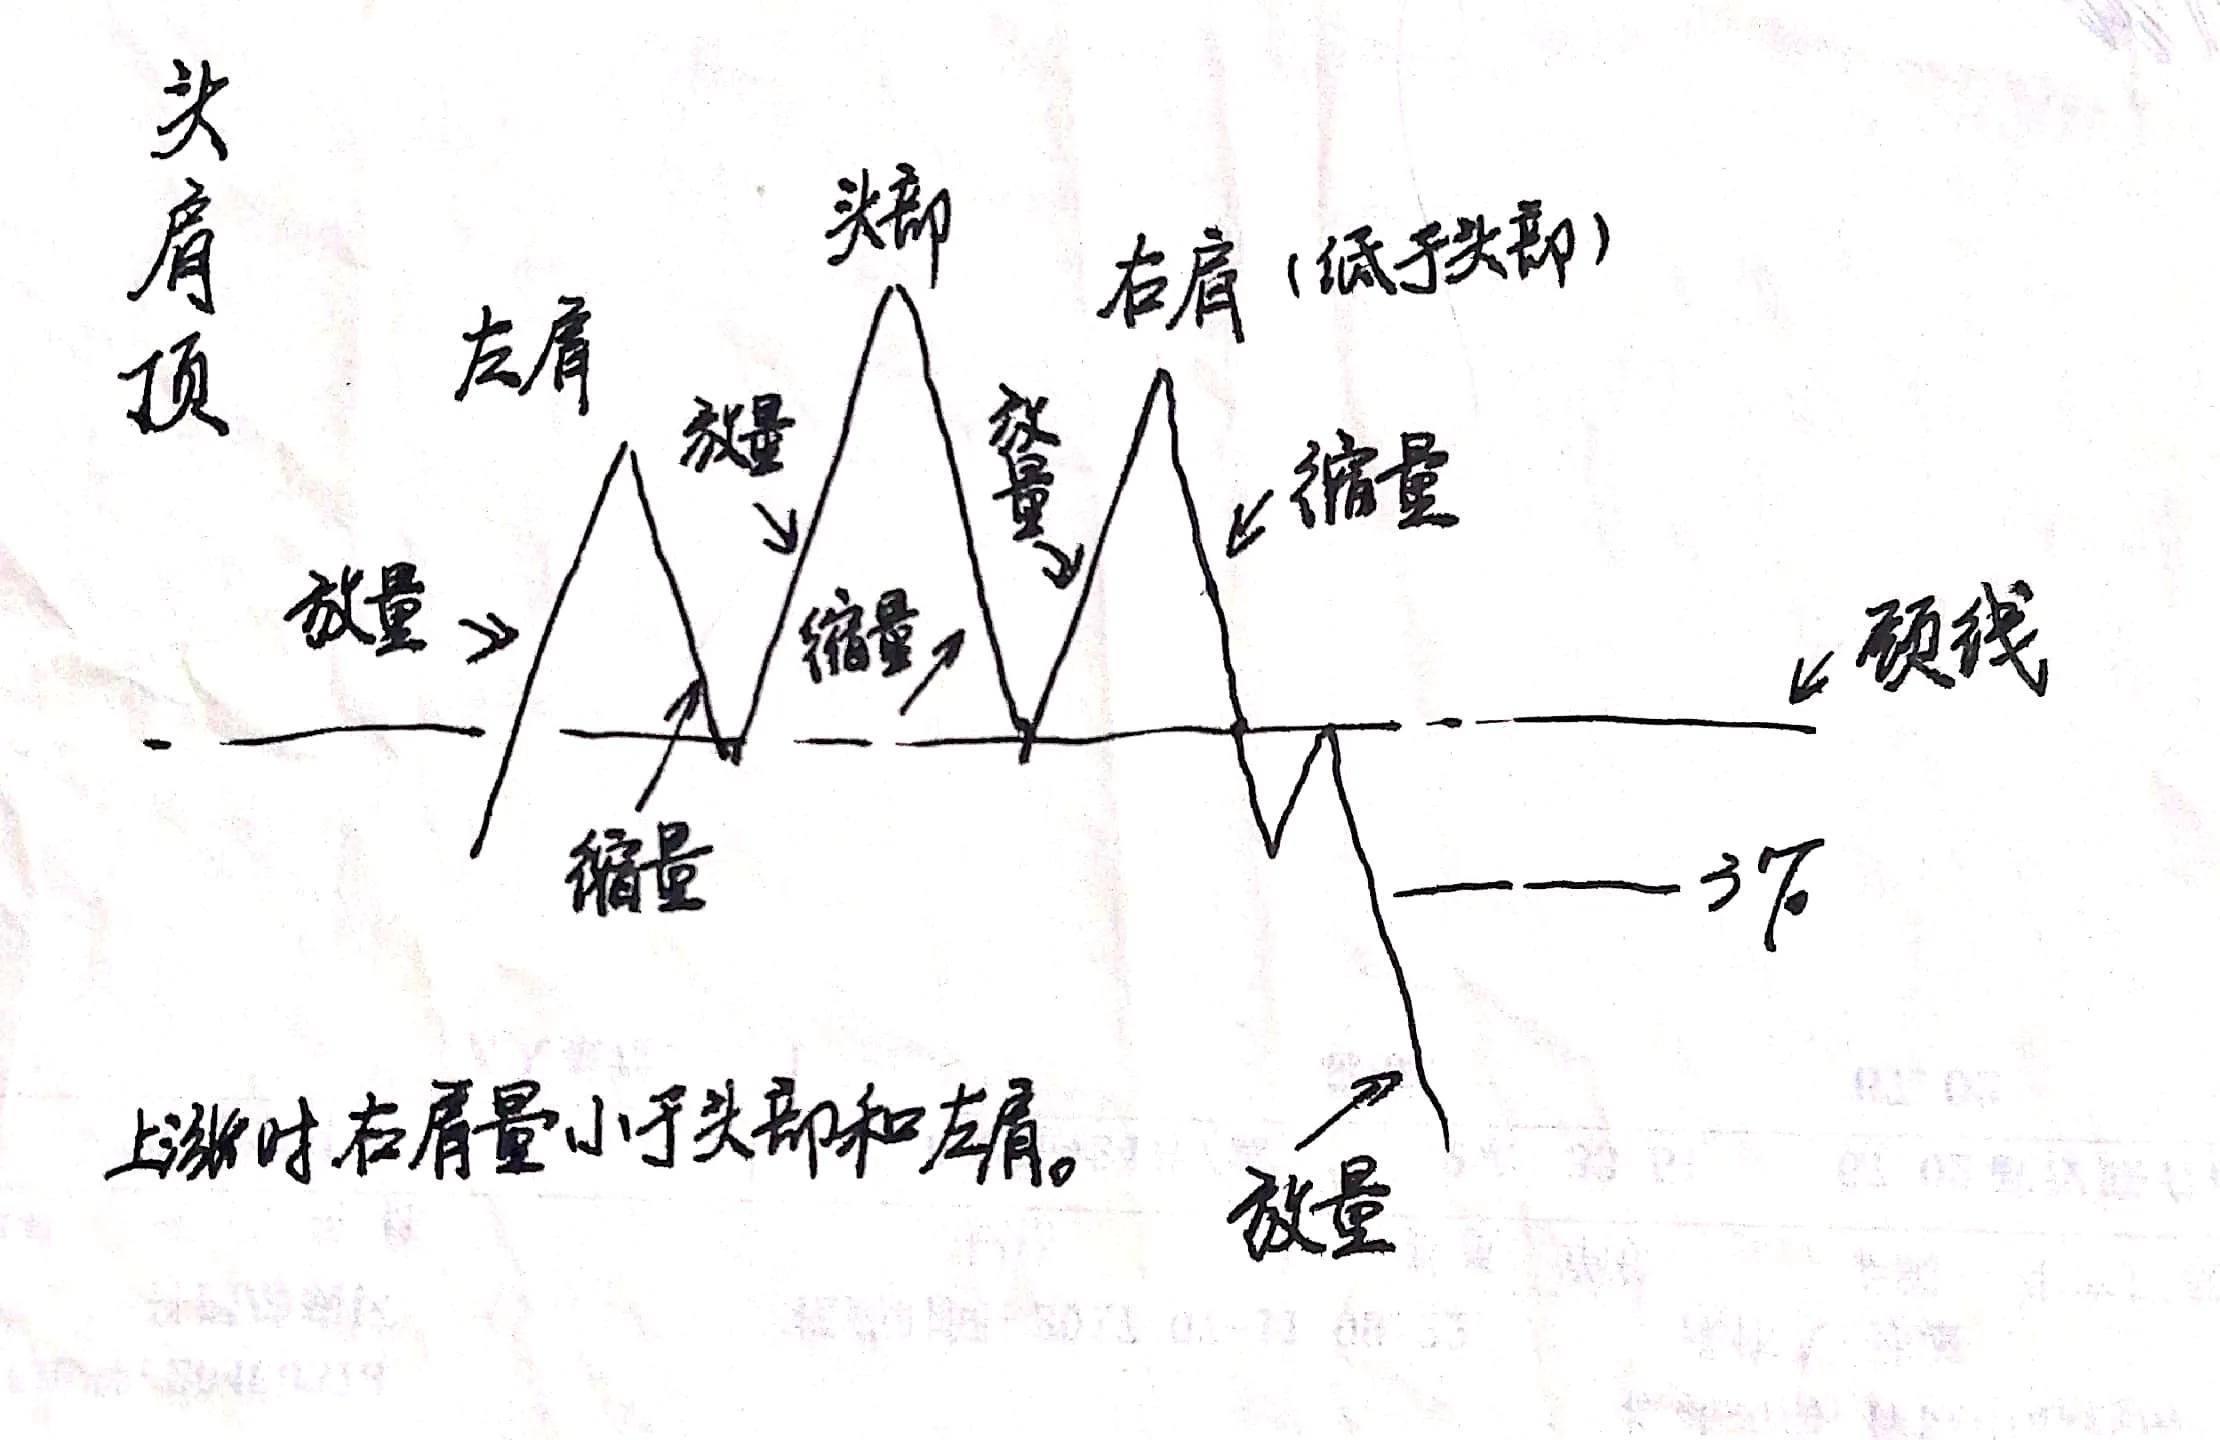 头肩顶
头部
右肩（低于头部）
左肩
放量
放量
缩量
放量
缩量
颈线
缩量
3%
上涨时右肩量小于头部和左肩。
放量